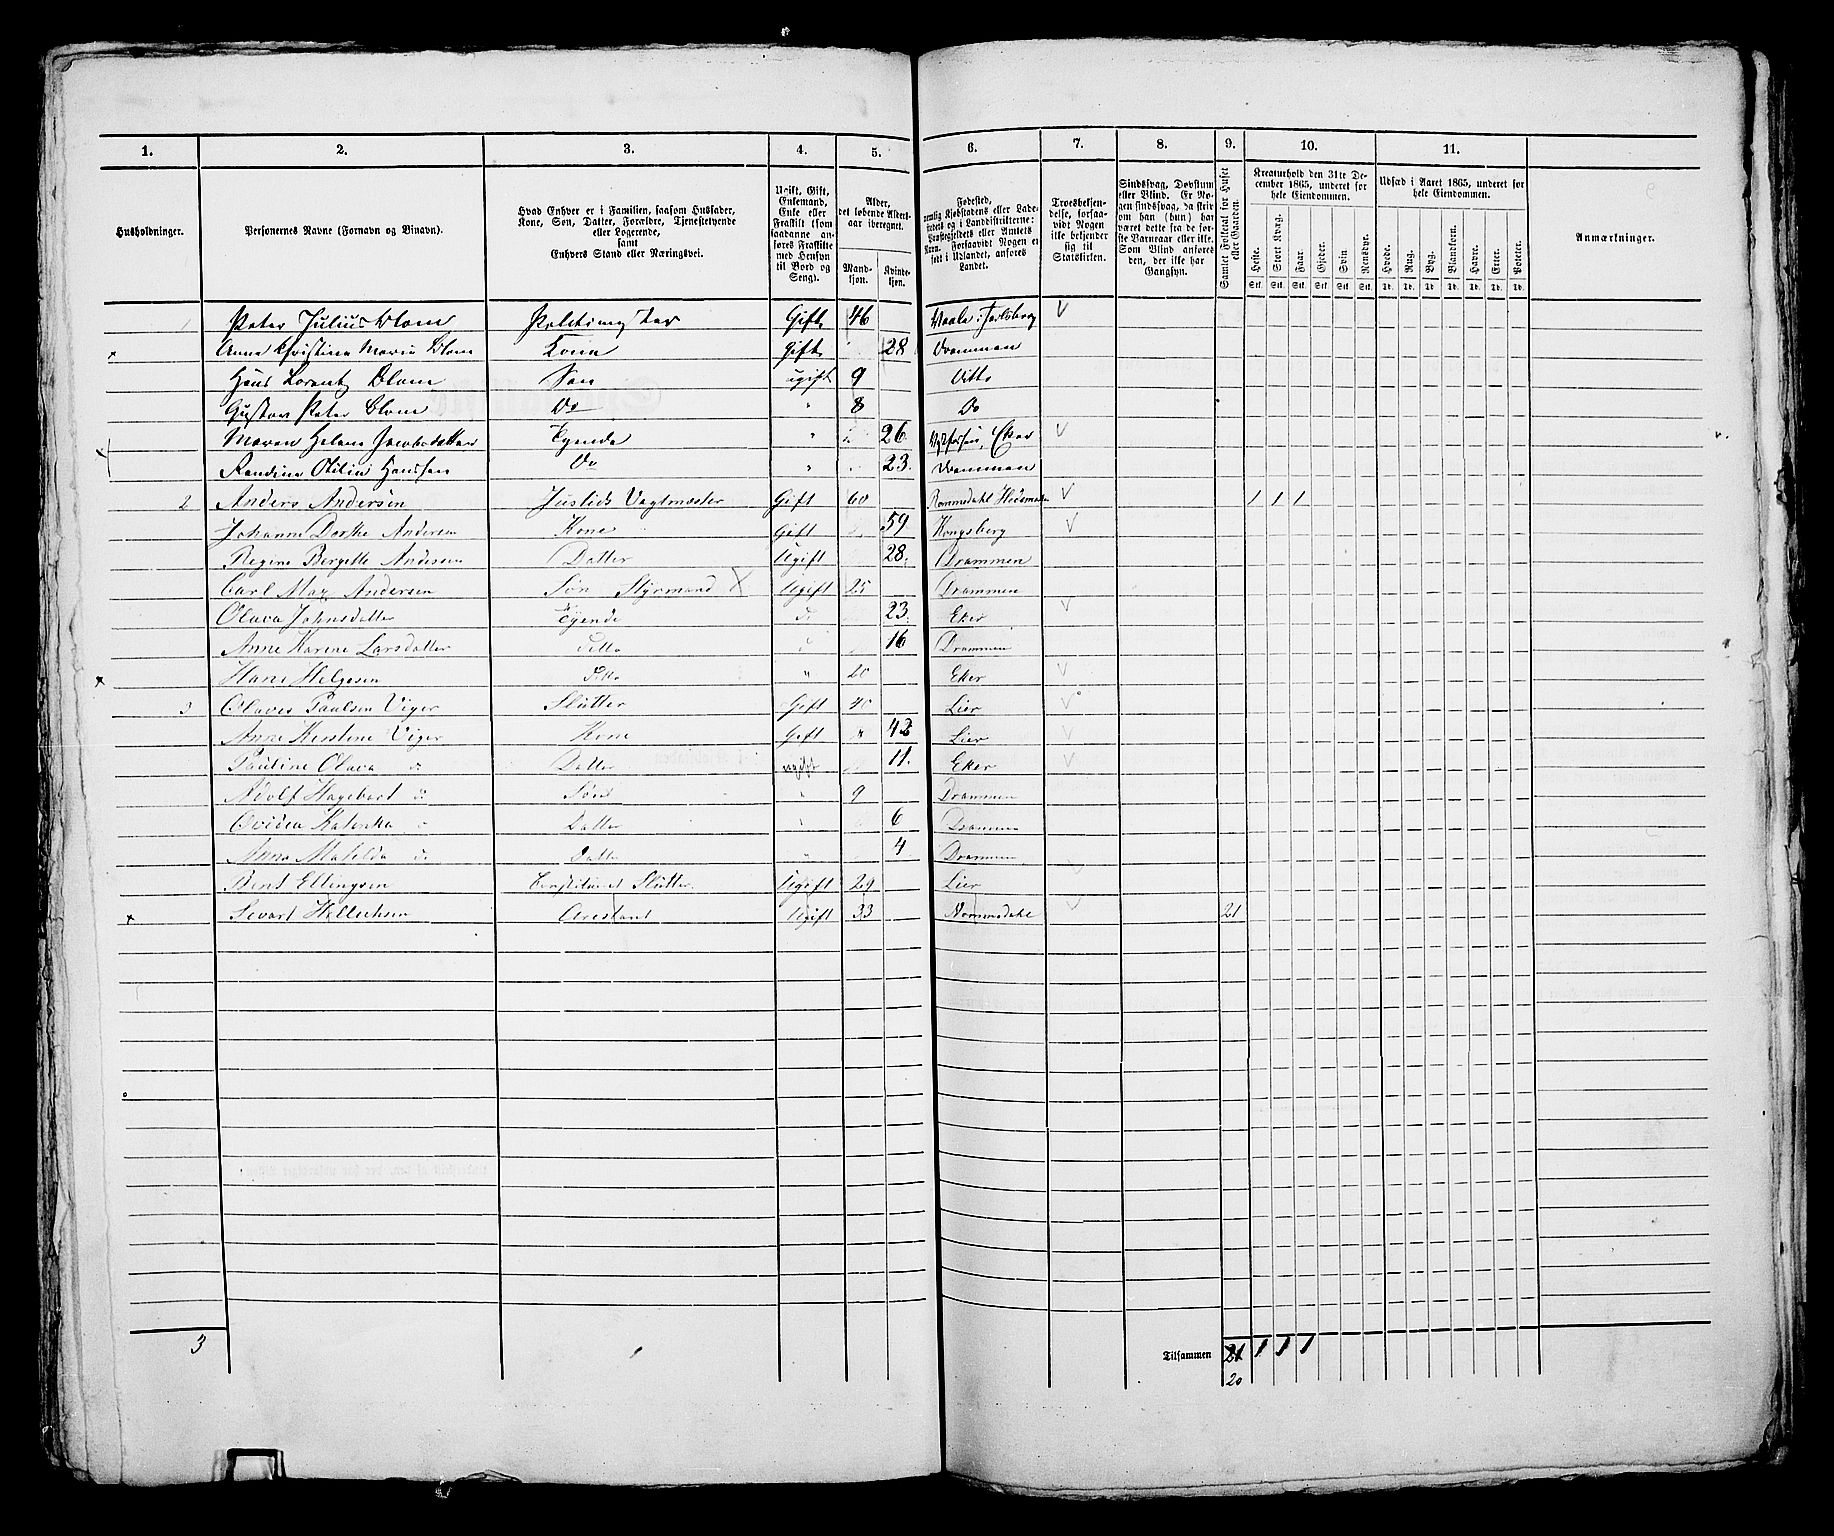 1. 2. 3. 4. 5. 6. 7. 8. 9. 10. 11.
Husholdninger.
Personernes Navne (Fornavn og Binavn).
Hvad Enhver er i Familien, saasom Husfader,
Kone, Søn, Datter, Forældre, Tjenestetyende
eller Logerende,
samt
Enhvers Stand eller Næringsvei.
Ugift, Gift,
Enkemand,
Enke eller
Fraskilt (som
saadanne an-
føres Fraskilte
med Hensyn
til Bord og
Seng).
Alder,
det løbende Alders-
aar iberegnet.
Mand-
kjøn.
Kvinde-
kjøn.
Fødested,
nemlig Kjøbstadens eller Lade-
stedets og i Landdistrikterne:
Præstegjeldets eller Amtets
Navn. Forsaavidt Nogen er
født i Udlandet, anføres
Landet.
Troesbekjen-
delse, forsaa-
vidt Nogen
ikke bekjender
sig til
Statskirken.
Sindssvag, Døvstum
eller Blind. Er No-
gen sindssvag, da skri-
ves om han (hun) har
været dette fra de før-
ste Barneaar eller ikke.
Som Blind anføres
den, der ikke har
Gangsyn.
Samlet Folketal for Huset
eller Gaarden.
Kreaturhold den 31te De-
cember 1865, underet for
hele Eiendommen.
Heste. Stort Kvæg. Faar. Gjeder. Svin Rensdyr.
Stk. Stk. Stk. Stk. Stk. Stk.
Udsæd i Aaret 1865, underet for
hele Eiendommen.
Hvede. Rug. Byg. Blandkorn. Havre. Erter. Poteter.
Td. Td. Td. Td. Td. Td. Td.
Anmærkninger.
1 Peter Julius Blom Politimester Gift 46 Vaale i Jarlsberg
Anna Christina Maria Blom Kone Gift 28 Drammen
Hans Lorentz Blom Søn ugift 9 Ditto
Gustav Peter Blom Do " 8 Do
Maren Helene Jacobsdatter Tyende " 26 Eker
Randine Otilia Hansen Do " 23. Drammen
2 Anders Andersen Justids Vagtmester Gift 60 Rommedahl 1 1 1
Johanne Dorthe Andersen Kone Gift 59 Kongsberg
Regine Bergette Andersen Datter Ugift 28. Drammen
Carl Max Andersen Søn Styrmand Ugift 25 Drammen
Olava Johnsdatter Tyende do 23. Eker
Anne Karine Larsdatter ditto 16 Drammen
Hans Helgesen ditto " 20 Eker
3 Olaves Paulsen Viger Slutter Gift 40 Lier
Anne Kirstine Viger Kone Gift " 42 Lier
Pauline Olava do Datter ugift 11. Eker
Adolf Hagebart do Søn " 9 Drammen
Ovidia Katinka Datter 6 Drammen
Anna Matilda do Datter " 4 Drammen
Bent Ellingsen Constitueret Slutter Ugift 29 Lier
Sevart Hellechsen Arestant Ugift 33 Nommedahl 21
3
Tilsammen 21 1 1 1
20